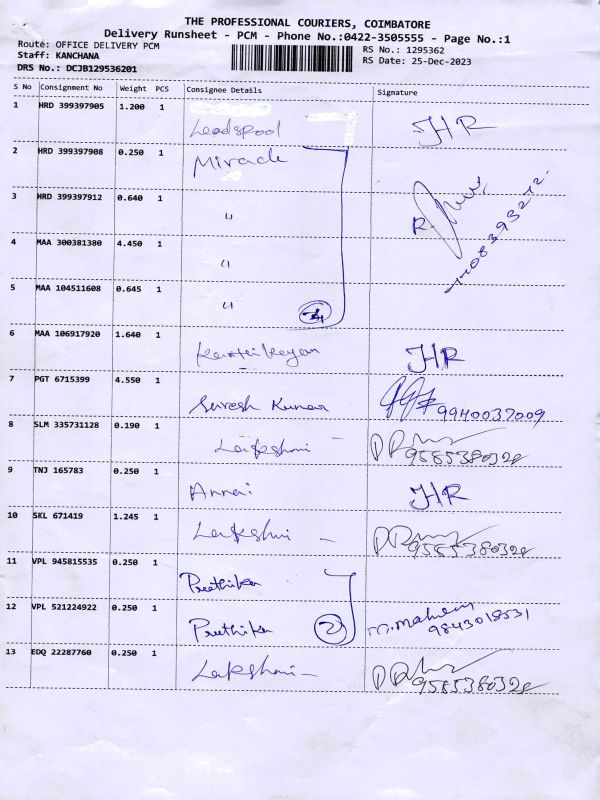 THE PROFESSIONAL COURIERS, COIMBATORE
Delivery Runsheet - PCM - Phone No.:0422-3505555 - Page No.:1
Route: OFFICE DELIVERY PCM
RS No.: 1295362
Staff: KANCHANA
RS Date: 25-Dec-2023
DRS No.: DCJB129536201
S No Consignment No Weight PCS Consignee Details Signature
1 HRD 399397905 1.200 1 Leadspool JHR
2 HRD 399397908 0.250 1 Miracle
3 HRD 399397912 0.640 1 "
4 MAA 300381380 4.450 1 "
5 MAA 104511608 0.645 1 " 4
6 MAA 106917920 1.640 1 Karthikeyan JHR
7 PGT 6715399 4.550 1 Suresh Kumar 9940037009
8 SLM 335731128 0.190 1 Lakshmi - 9585380320
9 TNJ 165783 0.250 1 Annai JHR
10 SKL 671419 1.245 1 Lakshmi - 9585380320
11 VPL 945815535 0.250 1 Preethika
12 VPL 521224922 0.250 1 Preethika 2 9843018531
13 EDQ 22287760 0.250 1 Lakshmi - 9585380320